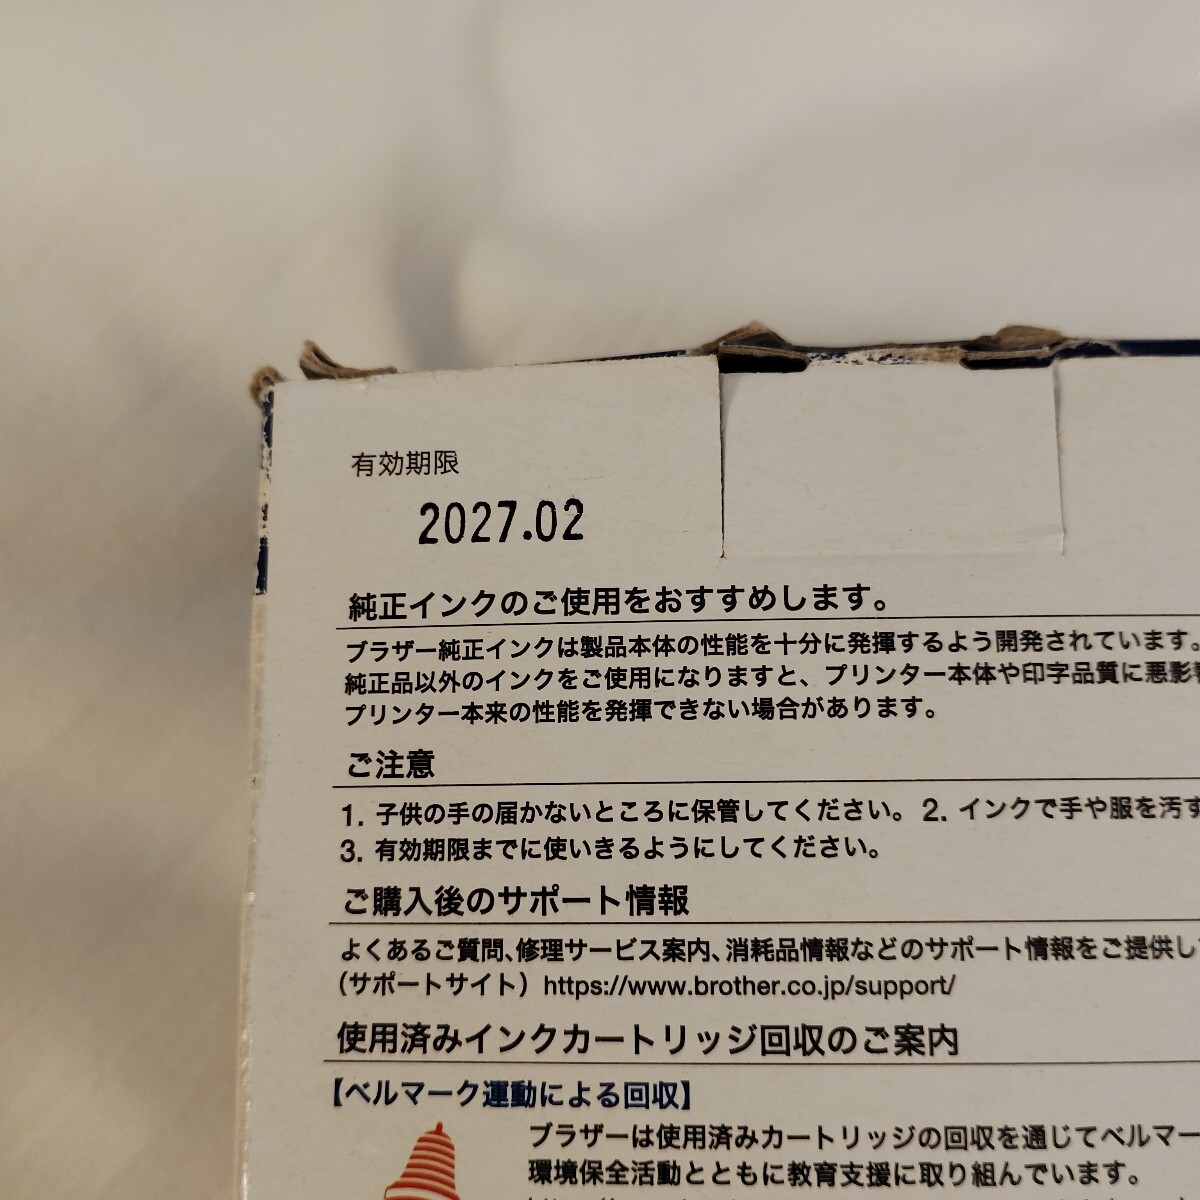 有効期限
2027.02
純正インクのご使用をおすすめします。
ブラザー純正インクは製品本体の性能を十分に発揮するよう開発されています。
純正品以外のインクをご使用になりますと、プリンター本体や印字品質に悪影
プリンター本来の性能を発揮できない場合があります。
ご注意
1. 子供の手の届かないところに保管してください。 2. インクで手や服を汚す
3. 有効期限までに使いきるようにしてください。
ご購入後のサポート情報
よくあるご質問、修理サービス案内、消耗品情報などのサポート情報をご提供し
（サポートサイト）https://www.brother.co.jp/support/
使用済みインクカートリッジ回収のご案内
【ベルマーク運動による回収】
ブラザーは使用済みカートリッジの回収を通じてベルマー
環境保全活動とともに教育支援に取り組んでいます。